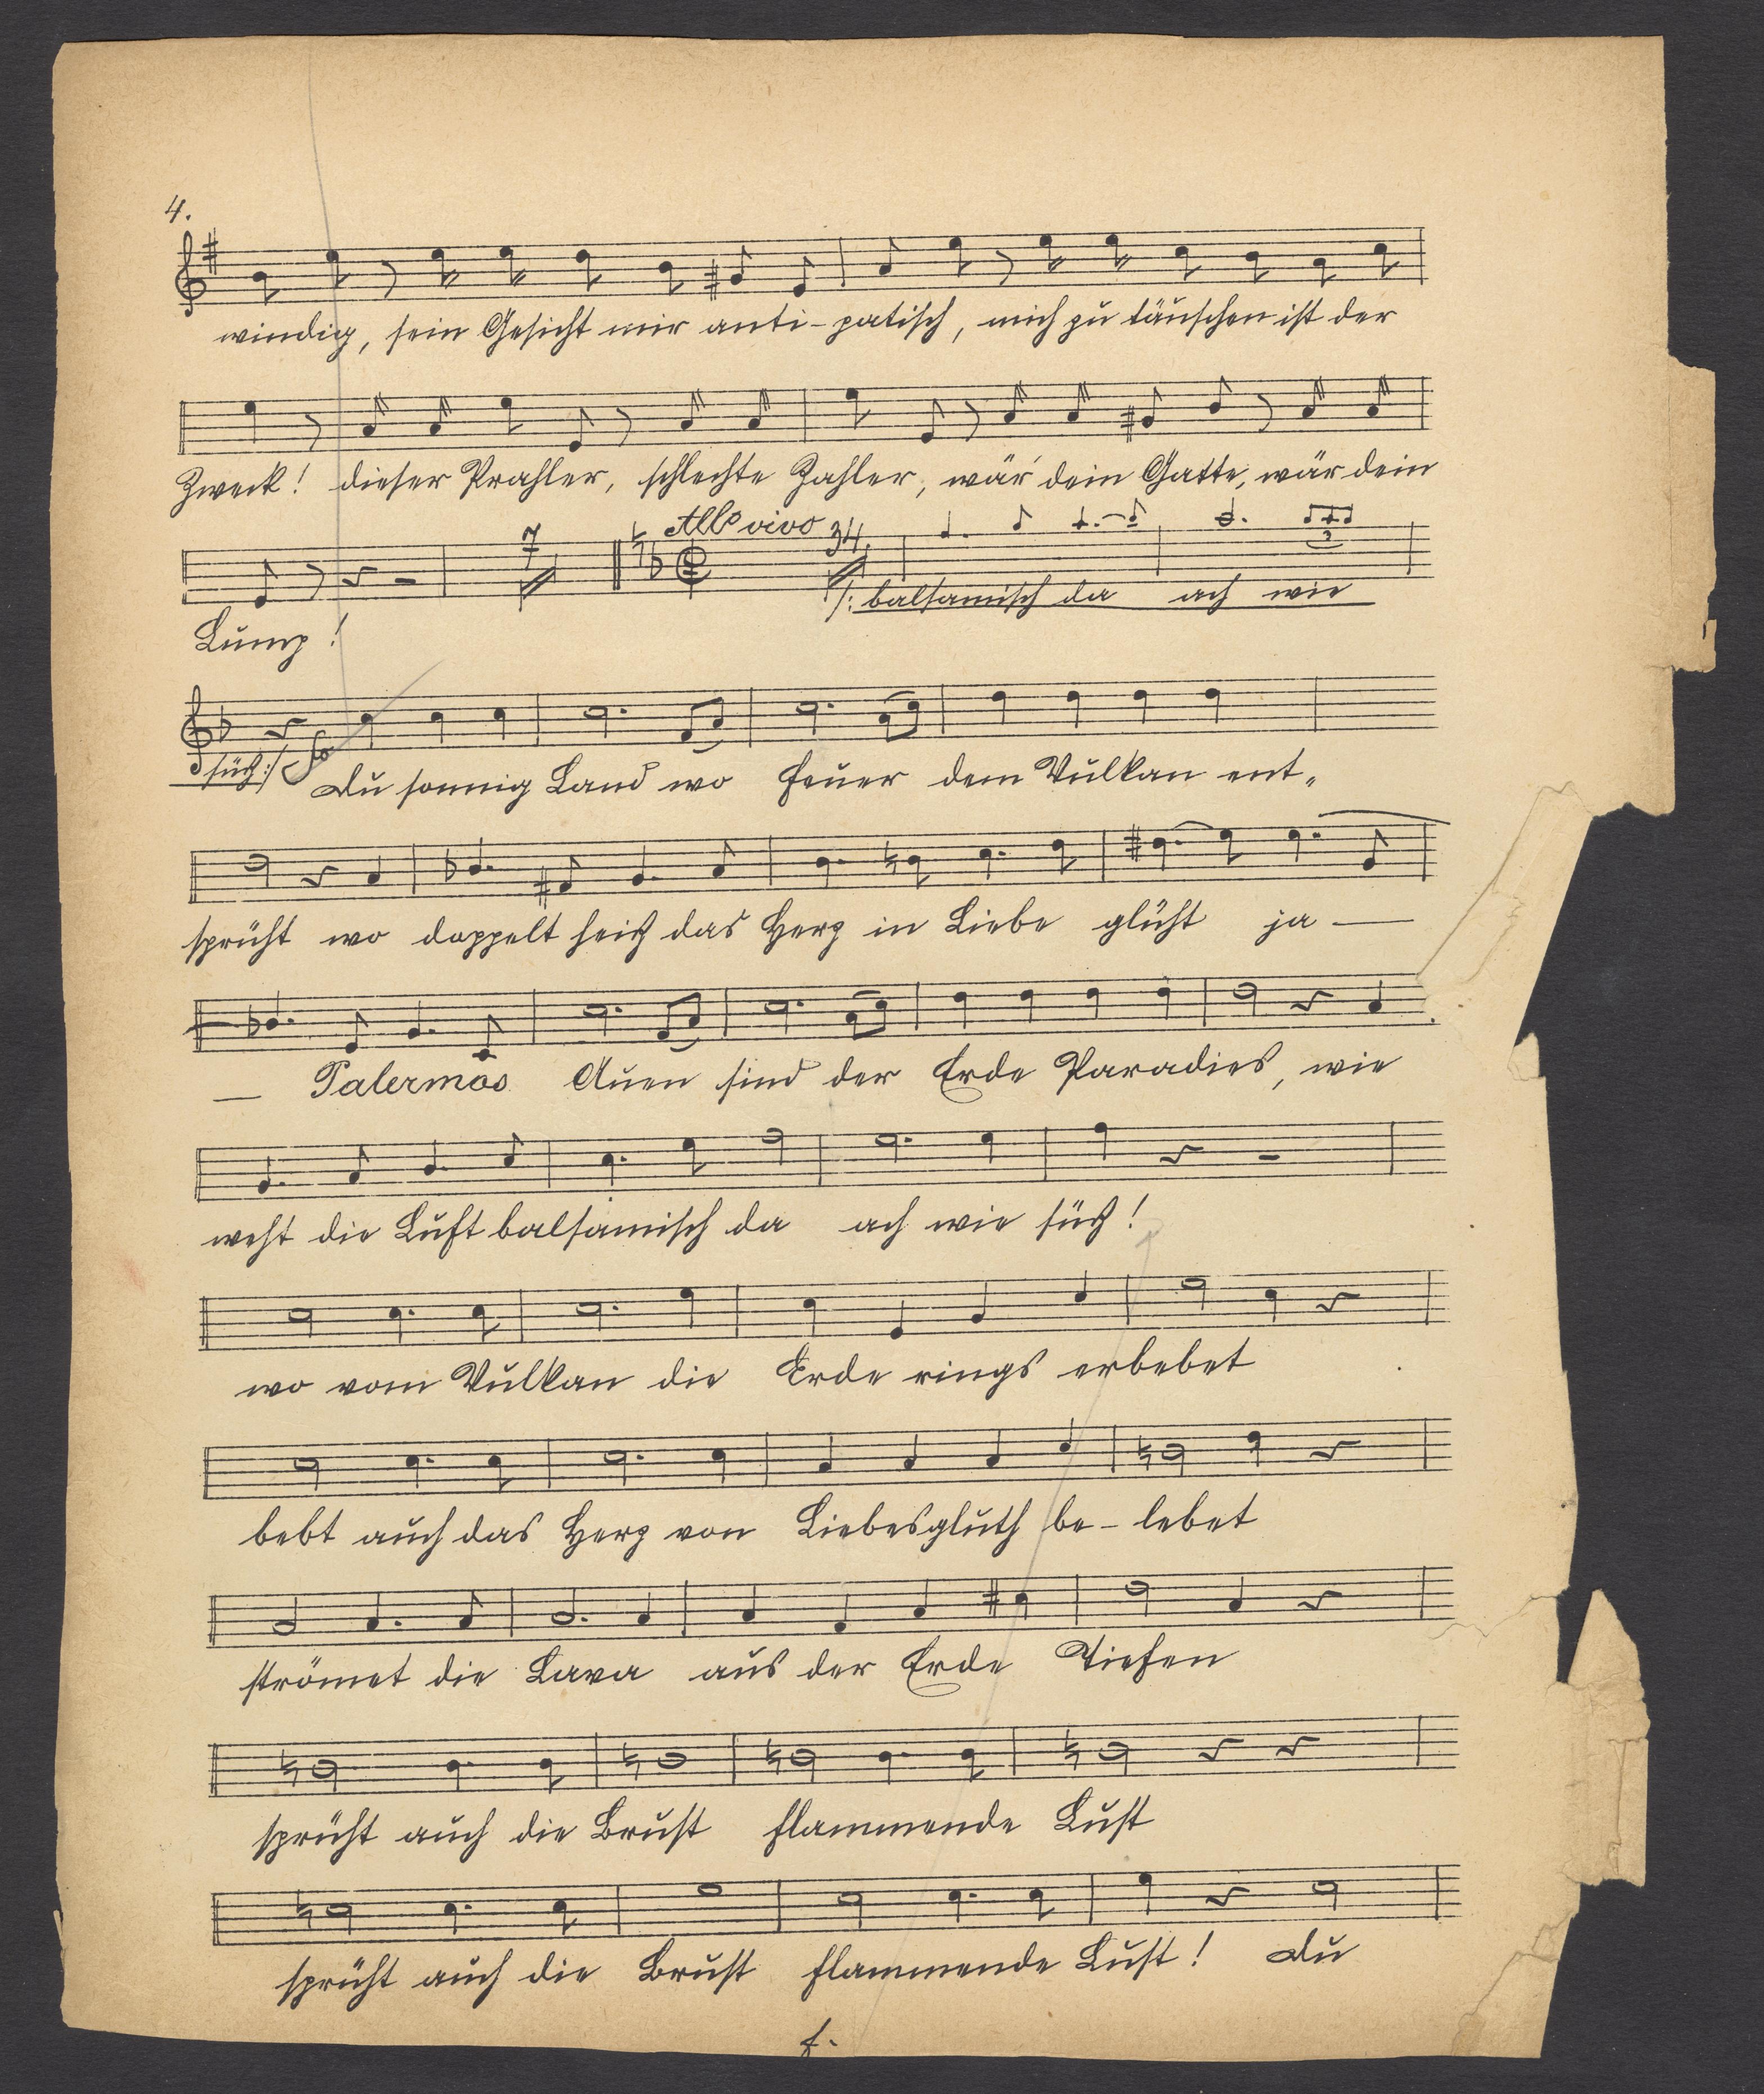 4.
windig, sein Gesicht mir anti-patisch, mich zu täuschen ist der
Zweck! dieser Prahler, schlechte Zahler, wär dein Gatte, wär dein
7 Allo vivo 34.
/: balsamisch da ach wie
3
Lump!
süß :/ Du sonnig Land wo Feuer dem Vulkan ent„
sprüht wo doppelt heiß das Herz in Liebe glüht ja —
— Palermos Auen sind der Erde Paradies, wie
weht die Luft balsamisch da ach wie süß!
wo vom Vulkan die Erde rings erbebet
bebt auch das Herz von Liebesgluth be-lebet
strömet die Lava aus der Erde Tiefen
sprüht auch die Brust flammende Lust
sprüht auch die Brust flammende Lust! Du
f.